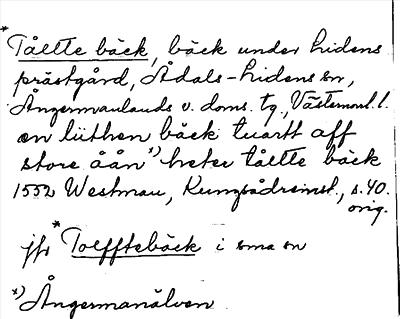 *
Tåeltte bäck, bäck under Lidens
prästgård, Ådals-Lidens sn,
Ångermanlands v. doms. tg, Västernorrl. l.
en liithen bäck tuartt aff
store åån x) heter tåeltte bäck
1552 Westman, Kungsådreinst., s. 40.
orig.
jfr *Toefftebäck i sma sn
x) Ångermanälven